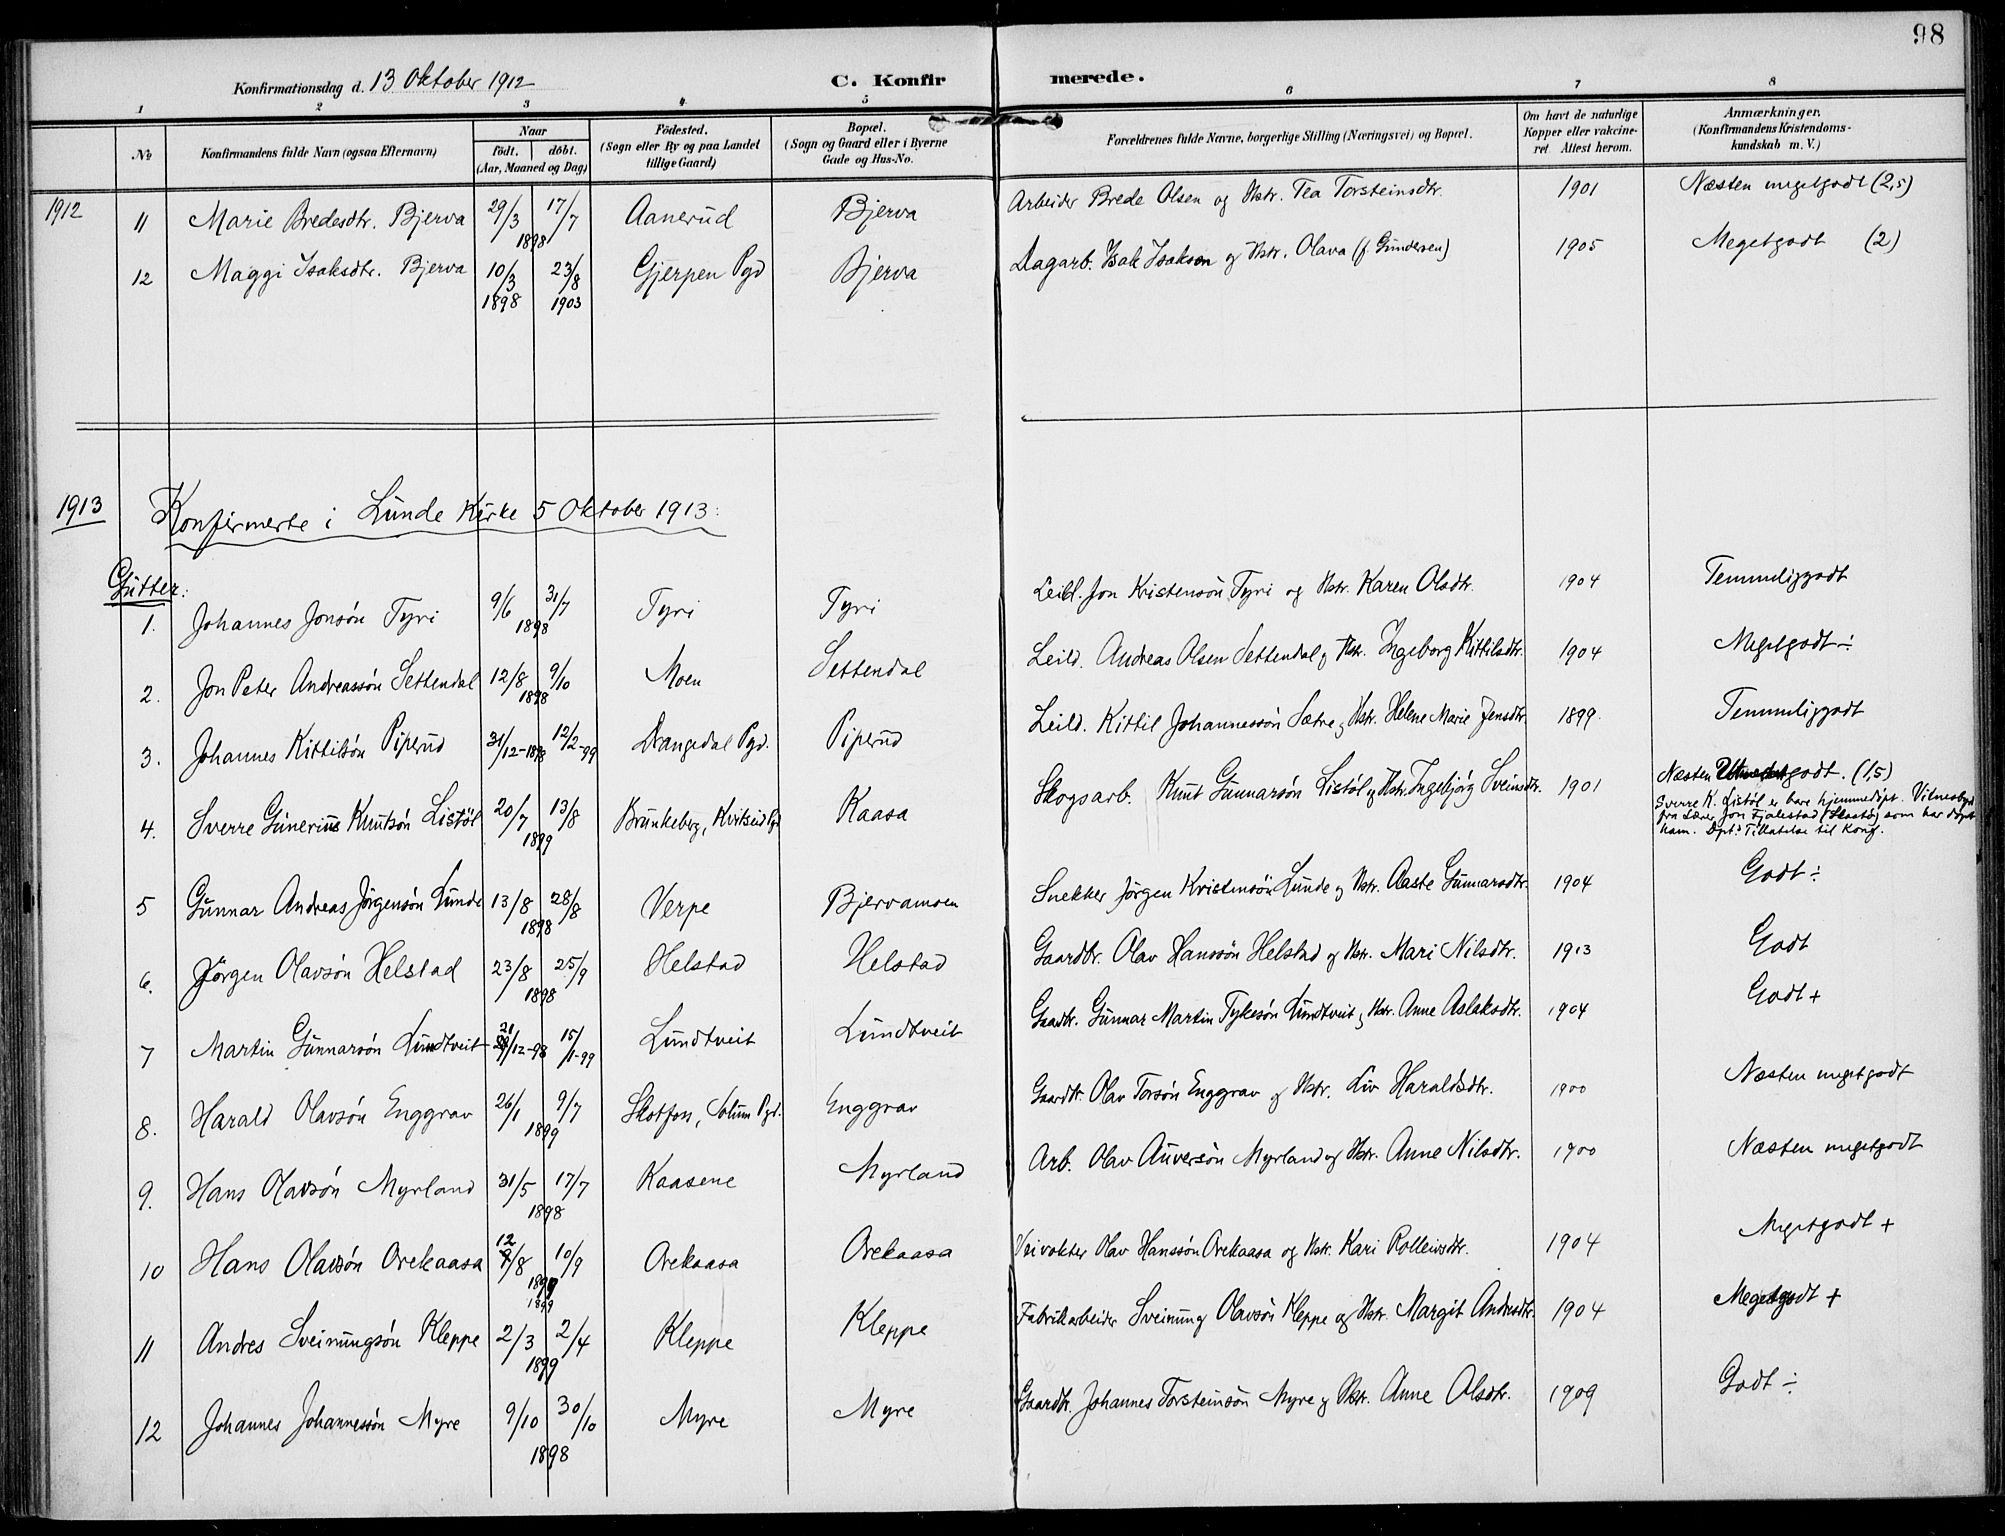 98
Konfirmationsdag d. 13 Oktober 1912
C. Konfirmerede.
1 2 3 4 5 6 7 8
№ Konfirmandens fulde Navn (ogsaa Efternavn) Naar födt. döbt. (Aar, Maaned og Dag) Födested. (Sogn eller By og paa Landet tillige Gaard) Bopæl. (Sogn og Gaard eller i Byerne Gade og Hus-No. Forældrenes fulde Navne, borgerlige Stilling (Næringsvei) og Bopæl. Om havt de naturlige Kopper eller vakcineret. Attest herom. Anmærkninger. (Konfirmandens Kristendomskundskab m. V.)
1912 11 Marie Bredesdtr. Bjerva 29/3 17/7 1898 Aanerud Bjerva Arbeider Brede Olsen og Hstr. Tea Torsteinsdtr. 1901 Næsten megetgodt (2,5)
12 Maggi Isaksdtr. Bjerva 10/3 1898 23/8 1903 Gjerpen Pgd Bjerva Dagarb. Isak Isaksen og Hstr. Olava (f. Gundersen) 1905 Megetgodt (2)
1913 Konfirmerte i Lunde Kirke 5 Oktober 1913:
Gutter:
1. Johannes Jonsön Tyri 9/6 31/7 1898 Tyri Tyri Leil. Jon Kristensön Tyri og Hstr. Karen Olsdtr. 1904 Temmeliggodt
2. Jon Peter Andreassön Settendal 12/8 9/10 1898 Moen Settendal Leild. Andreas Olsen Settendal og Hstr. Ingeborg Kittilsdtr. 1904 Megetgodt ÷
3. Johannes Kittilsön Piperud 31/12-1898 12/2-99 Drangedal Pgd. Piperud Leild. Kittil Johannessön Sætre og Hstr. Helene Marie Jensdtr. 1899. Temmeliggodt
4. Sverre Gunerius Knutsön Listöl 20/7 13/8 1899 Brunkeberg, Kviteseid Pgd Kaasa Skogsarb. Knut Gunnarsön Listöl og Hstr. Ingebjörg Sveinsdtr. 1901 Næsten godt. (1,5)
Sverre K. Listöl er bare hjemmedöpt. Vitnesbyrd
fra Lærer Jon Fjalestad som har döpt
ham. Dpt.s Tillatelse til Konf.
5 Gunnar Andreas Jörgensön Lunde 13/8 28/8 1898 Verpe Bjervamoen Snekker Jörgen Kristensön Lunde og Hstr. Aaste Gunnarsdtr. 1904 Godt ÷
6. Jörgen Olavsön Helstad 23/8 25/9 1898 Helstad Helstad Gaardbr. Olav Hanssön Helstad og Hstr. Mari Nilsdtr. 1913 Godt
7 Martin Gunnarsön Lundtveit 21/12-98 15/1-99 Lundtveit Lundtveit Gaardbr. Gunnar Martin Tykesön Lundtveit og Hstr. Anne Aslaksdtr. 1904 Godt +
8. Harald Olavsön Enggrav 26/1 9/7 1899 Skotfos, Solum Pgd. Enggrav Gaardbr. Olav Torsön Enggrav og Hstr. Liv Haraldsdtr. 1900 Næsten megetgodt
9. Hans Olavsön Myrland 31/5 17/7 1898 Kaasene Myrland Arb. Olav Auversön Myrland og Hstr. Anne Nilsdtr. 1900 Næsten megetgodt
10 Hans Olavsön Orekaasa 12/8 10/9 1899 1899 Orekaasa Orekaasa Veivokter Olav Hanssön Orekaasa og Hstr. Kari Rolleivsdtr. 1904 Megetgodt +
11 Andres Sveinungsön Kleppe 2/3 2/4 1899 Kleppe Kleppe Fabrikarbeider Sveinung Olavsön Kleppe og Hstr. Margit Andresdtr. 1904 Megetgodt +
12 Johannes Johannessön Myre 9/10 30/10 1898 Myre Myre Gaardbr. Johannes Torsteinsön Myre og Hstr. Anne Olsdtr. 1909 Godt ÷